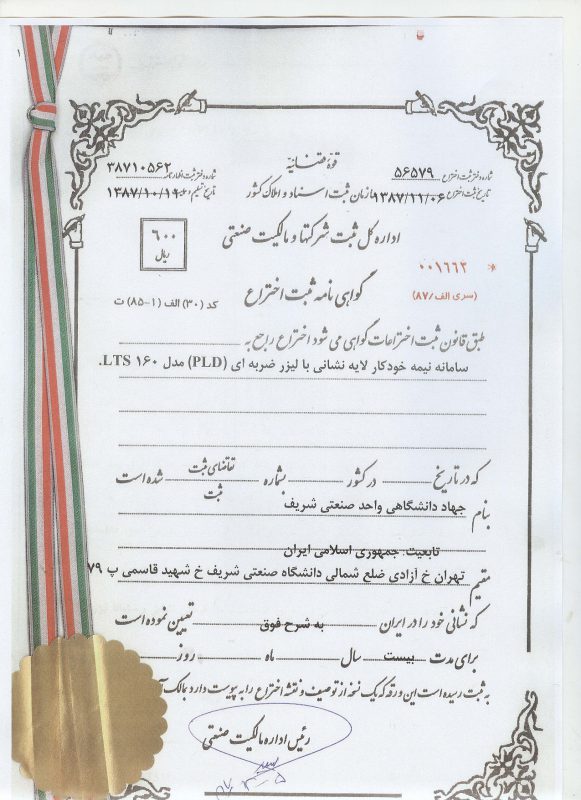 قوهٔ قضائیه
شماره دفتر ثبت اختراع ۵۶۵۷۹
شماره دفتر ثبت اظهارنامه ۳۸۷۱۰۵۶۲
سازمان ثبت اسناد و املاک کشور
تاریخ ثبت اختراع ۱۳۸۷/۱۱/۰۶
۱۳۸۷/۱۰/۱۹
اداره کل ثبت شرکتها و مالکیت صنعتی
۶۰۰
ریال
* ۰۰۱۶۶۳
(سری الف/۸۷)
گواهی نامه ثبت اختراع
کد (۳۰) الف (۱-۸۵) ت
طبق قانون ثبت اختراعات گواهی می شود اختراع راجع به
سامانه نیمه خودکار لایه نشانی با لیزر ضربه ای (PLD) مدل LTS ۱۶۰.
که در تاریخ در کشور بشماره تقاضای ثبت شده است
ثبت
بنام جهاد دانشگاهی واحد صنعتی شریف
تابعیت: جمهوری اسلامی ایران
مقیم تهران خ آزادی ضلع شمالی دانشگاه صنعتی شریف خ شهید قاسمی پ ۷۹
که نشانی خود را در ایران به شرح فوق تعیین نموده است
برای مدت بیست سال ماه روز
به ثبت رسیده است این ورقه که یک نسخه از توصیف و نقشه اختراع را به پیوست دارد بمالک
رئیس اداره مالکیت صنعتی